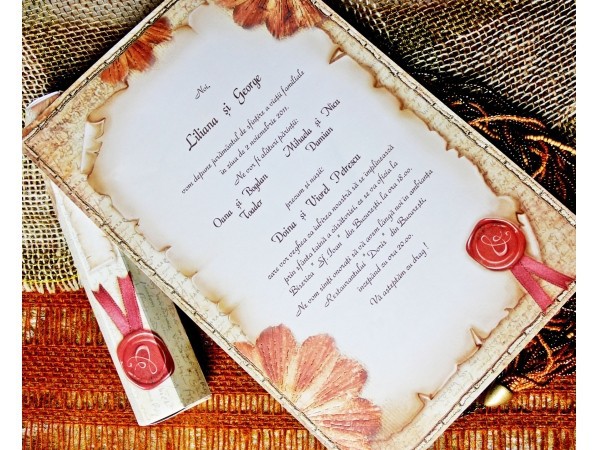 Noi,
Liliana și George
vom depune jurământul de sfințire a vieții familiale
în ziua de 2 noiembrie 2011.
Ne vor fi alături părinții:
Oana și Bogdan Mihaela și Nicu
Toader Damian
precum și nașii:
Doina și Viorel Petrescu
care vor veghea ca iubirea noastră să se împlinească
prin sfânta taină a căsătoriei, ce se va oficia la
Biserica " Sf. Ioan " din București la ora 18.00.
Ne vom simți onorați să vă avem lângă noi în ambianța
Restaurantului " Doris " din București
începând cu ora 20.00.
Vă așteptăm cu drag !